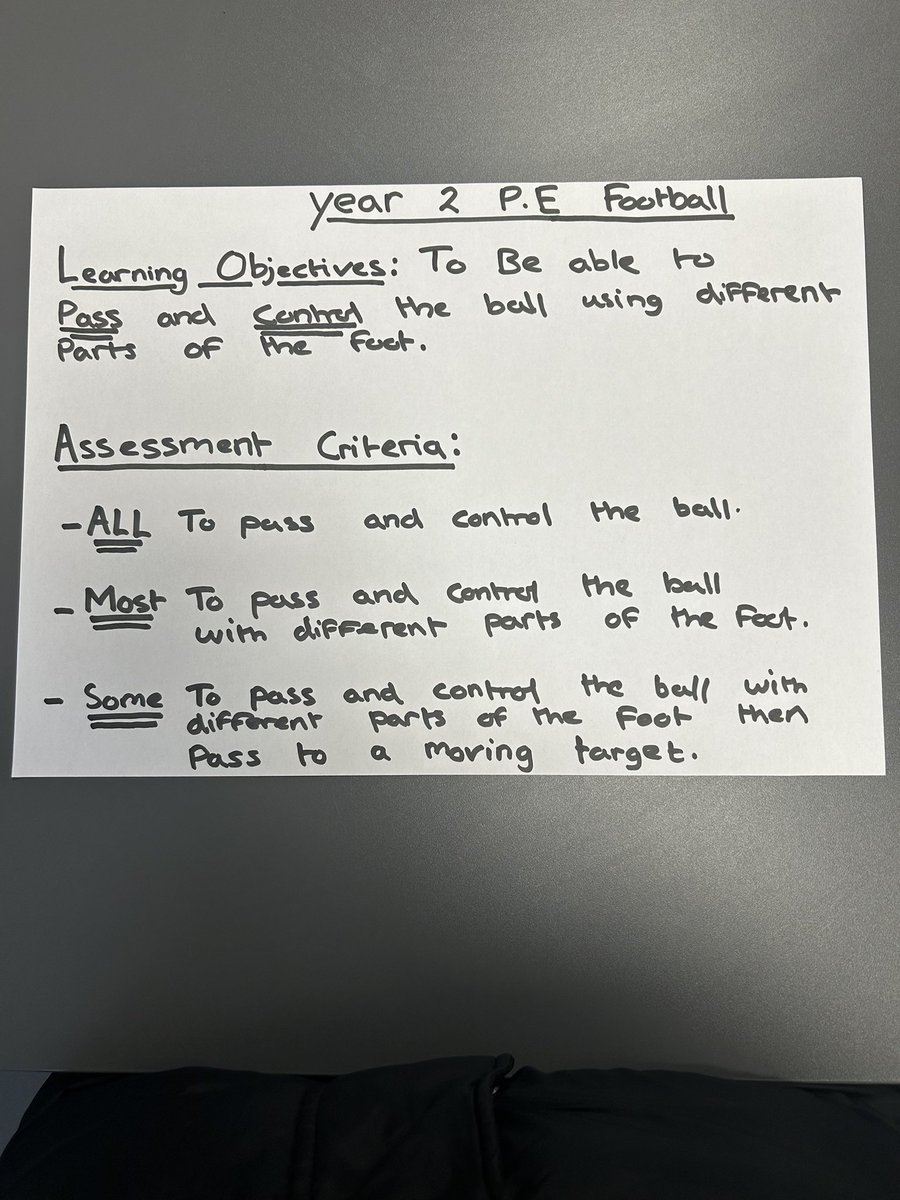 Year 2 P.E Football
Learning Objectives: To Be able to
Pass and Control the ball using different
Parts of the Foot.
Assessment Criteria:
- ALL To pass and control the ball.
- Most To pass and control the ball
with different parts of the Foot.
- Some To pass and control the ball with
different parts of the Foot then
Pass to a moving target.